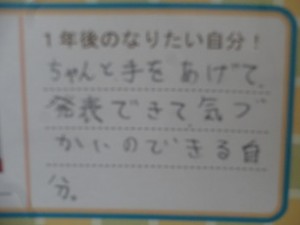 1年後のなりたい自分!
ちゃんと手をあげて、
発表できて、気づ
かいのできる自
分。